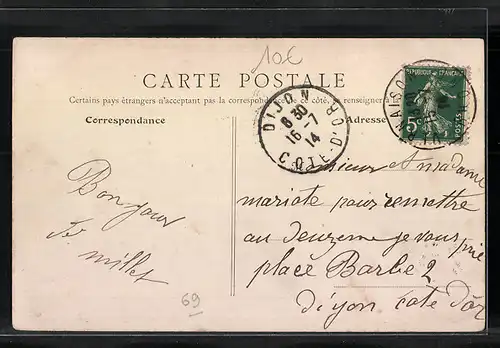 10€
CARTE POSTALE
Certains pays étrangers n'acceptant pas la correspondance de ce côté, se renseigner à la
Correspondance
Adresse
DIJON
8 30
16-7
14
COTE-D'OR
REPUBLIQUE FRANÇAISE
5
POSTES
Bonjour
millet
Monsieur et madame
mariote pour remettre
au deuzeme je vous prie
place Barbe 2
diyon cote d'or
69